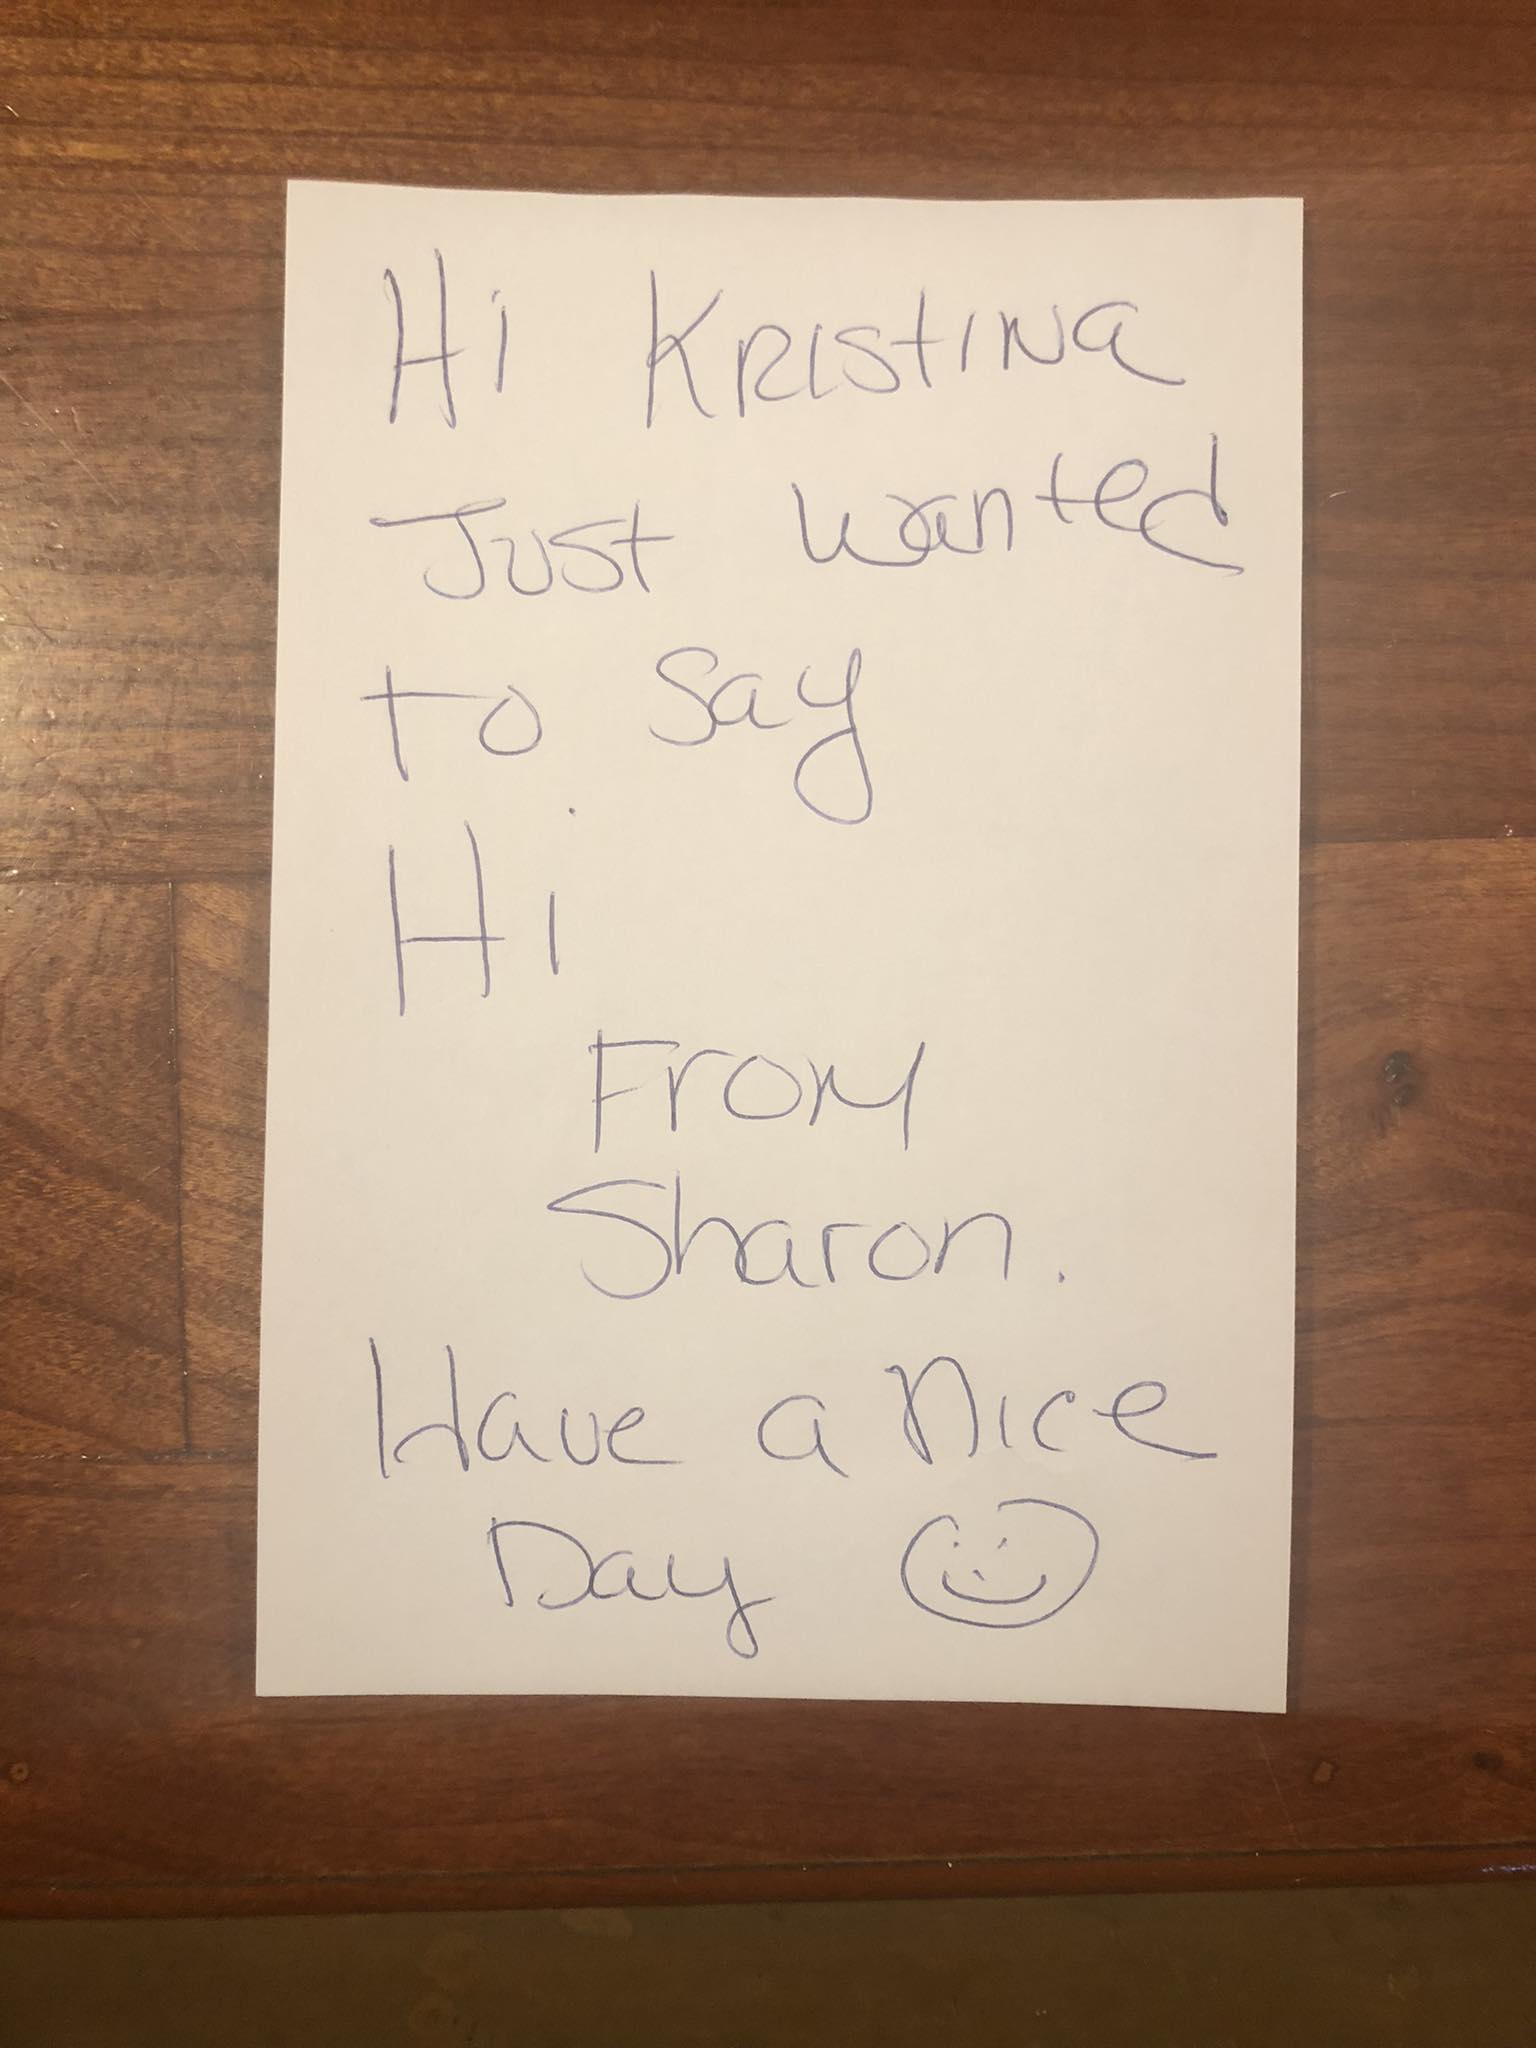 Hi Kristina
Just wanted
to say
Hi
From
Sharon.
Have a nice
Day